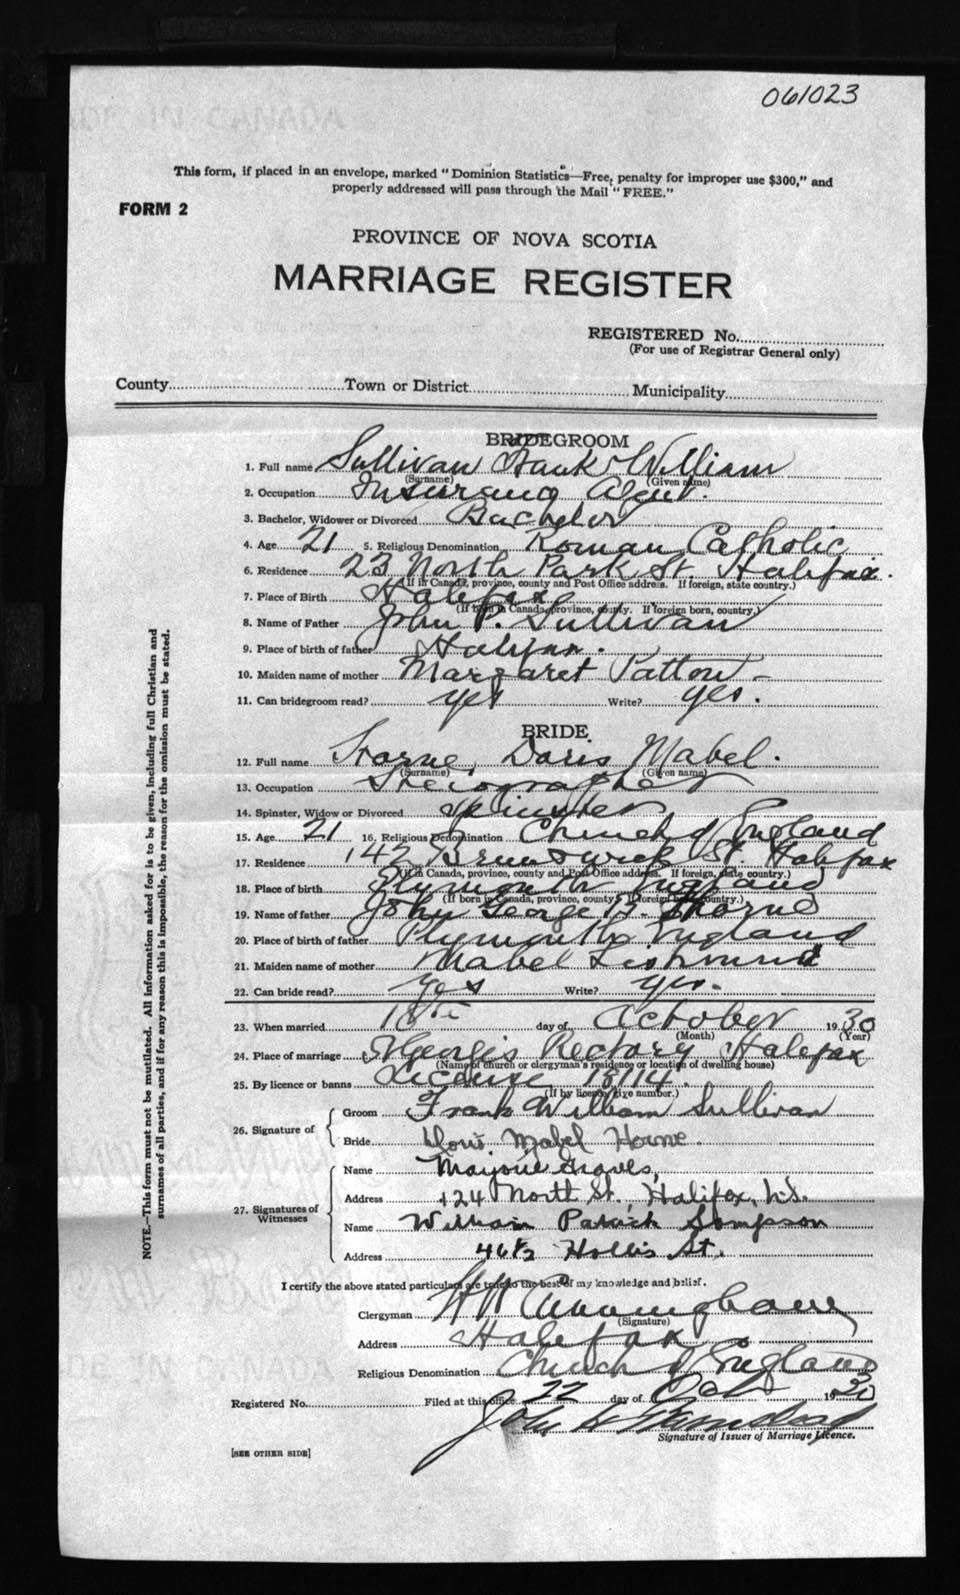 061023
This form, if placed in an envelope, marked "Dominion Statistics—Free, penalty for improper use $300," and
properly addressed will pass through the Mail "FREE."
FORM 2
PROVINCE OF NOVA SCOTIA
MARRIAGE REGISTER
REGISTERED No.
(For use of Registrar General only)
County Town or District Municipality
BRIDEGROOM
1. Full name Sullivan Frank William
(Surname) (Given name)
2. Occupation Insurance Agent.
3. Bachelor, Widower or Divorced Bachelor
4. Age 21 5. Religious Denomination Roman Catholic
6. Residence 23 North Park St. Halifax.
(If in Canada, province, county and Post Office address. If foreign, state country.)
7. Place of Birth Halifax
(If born in Canada, province, county. If foreign born, country.)
8. Name of Father John P. Sullivan
9. Place of birth of father Halifax.
10. Maiden name of mother Margaret Patton
11. Can bridegroom read? yes Write? yes.
BRIDE
12. Full name Horne, Doris Mabel.
(Surname) (Given name)
13. Occupation
14. Spinster, Widow or Divorced Spinster
15. Age 21 16. Religious Denomination Church of England
17. Residence 142 Brunswick St. Halifax
(If in Canada, province, county and Post Office address. If foreign, state country.)
18. Place of birth Plymouth England
(If born in Canada, province, county. If foreign born, country.)
19. Name of father John George Horne
20. Place of birth of father Plymouth England
21. Maiden name of mother Mabel
22. Can bride read? Yes Write? yes.
23. When married day of October 1930
(Month) (Year)
24. Place of marriage St Georges Rectory Halifax
(Name of church or clergyman's residence or location of dwelling house)
25. By licence or banns License 18114.
(If by licence, give number.)
26. Signature of Groom Frank William Sullivan
Bride Doris Mabel Horne.
27. Signatures of Witnesses
Name Marjorie Graves,
Address 124 North St, Halifax, N.S.
Name William Patrick Sampson
Address 46½ Hollis St.
I certify the above stated particulars are true to the best of my knowledge and belief.
Clergyman H W Cunningham
(Signature)
Address Halifax
Religious Denomination Church of England
Registered No. Filed at this office 22 day of Oct 1930
John
Signature of Issuer of Marriage Licence.
[SEE OTHER SIDE]
NOTE.—This form must not be mutilated. All information asked for is to be given, including full Christian and
surnames of all parties, and if for any reason this is impossible, the reason for the omission must be stated.